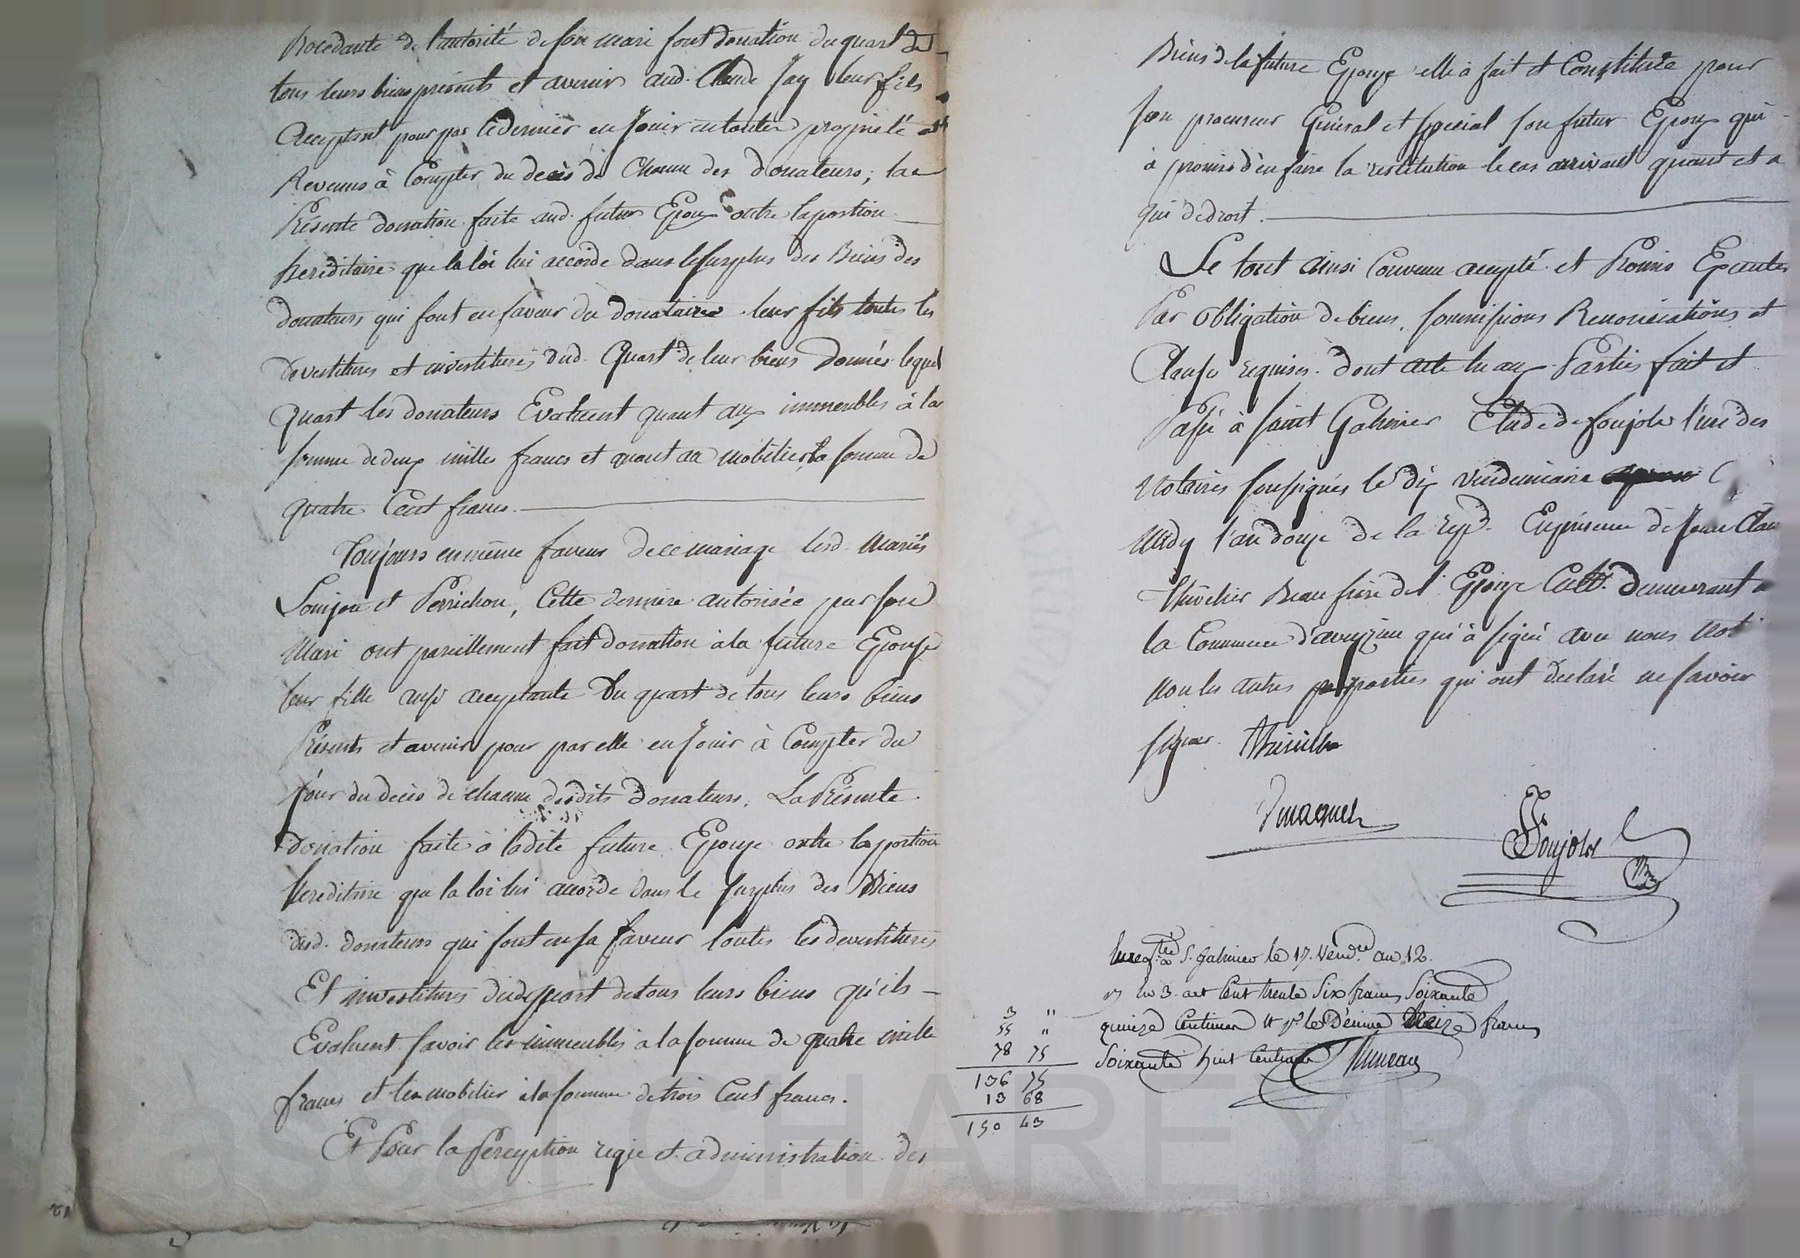 Procedante de l'autorité de son mari font donation du quart de
tous leurs biens présents et avenir aud. Claude Jay leur fils
acceptant pour par ce dernier en jouir en toute propriété et
Revenus à Compter du decès de Chacun des donateurs, la
Présente donation faite aud. futur Epoux outre la portion
hereditaire que la loi lui accorde dans le surplus des Biens des
donateurs qui font en faveur du donataire leur fils toutes les
devestitures et investitures dud. Quart de leur biens donnés lequel
Quart les donateurs Evaluent quant aux immeubles à la
somme de deux milles francs et quant au mobilier la somme de
quatre Cent francs.
Toujours en même faveur de ce mariage lesd. Mariés
et Perrichon, Cette derniere autorisée par son
Mari ont pareillement fait donation à la future Epouse
leur fille aussi acceptante Du quart de tous leurs biens
Présents et avenir pour par elle en jouir à Compter du
jour du decès de chacun desdits donateurs. La Présente
donation faite à ladite future Epouse outre la portion
hereditaire que la loi lui accorde dans le surplus des Biens
desd. donateurs qui font en sa faveur toutes les devestitures
Et investitures dud. quart de tous leurs biens qu'ils
Evaluent savoir les immeubles à la somme de quatre mille
francs et les mobilier à la somme de trois Cent francs.
Et Pour la Perception regie et administration des
Biens de la future Epouse elle a fait et Constitué pour
son procureur Général et special son futur Epoux qui
à promis d'en faire la restitution le cas arrivant quant et a
qui de droit.
Le tout ainsi Convenu accepté et Promis Executer
Par obligation de biens, soumissions Renonciations et
Clauses requises. dont acte lu aux Parties fait et
Passé à Saint Galmier Etude de Soujole l'un des
Notaires soussignés le dix vendemiaire
Midy l'an douze de la rep. En présence de Jean Clau
beau frère de l'Epouse Cultr. demeurant a
la Commune d'aveyzieu qui à signé avec nous Not
non les autres parties qui ont declaré ne savoir
signer.
Soujole
Enreg.tré à S. Galmier le 17. Vend.re an 12.
Cent trente Six francs Soixante
quinze Centimes et p.r le Dexime treize francs
Soixante huit Centimes
3 "
55 "
78 75
136 75
13 68
150 43
ascal CHAREYRON